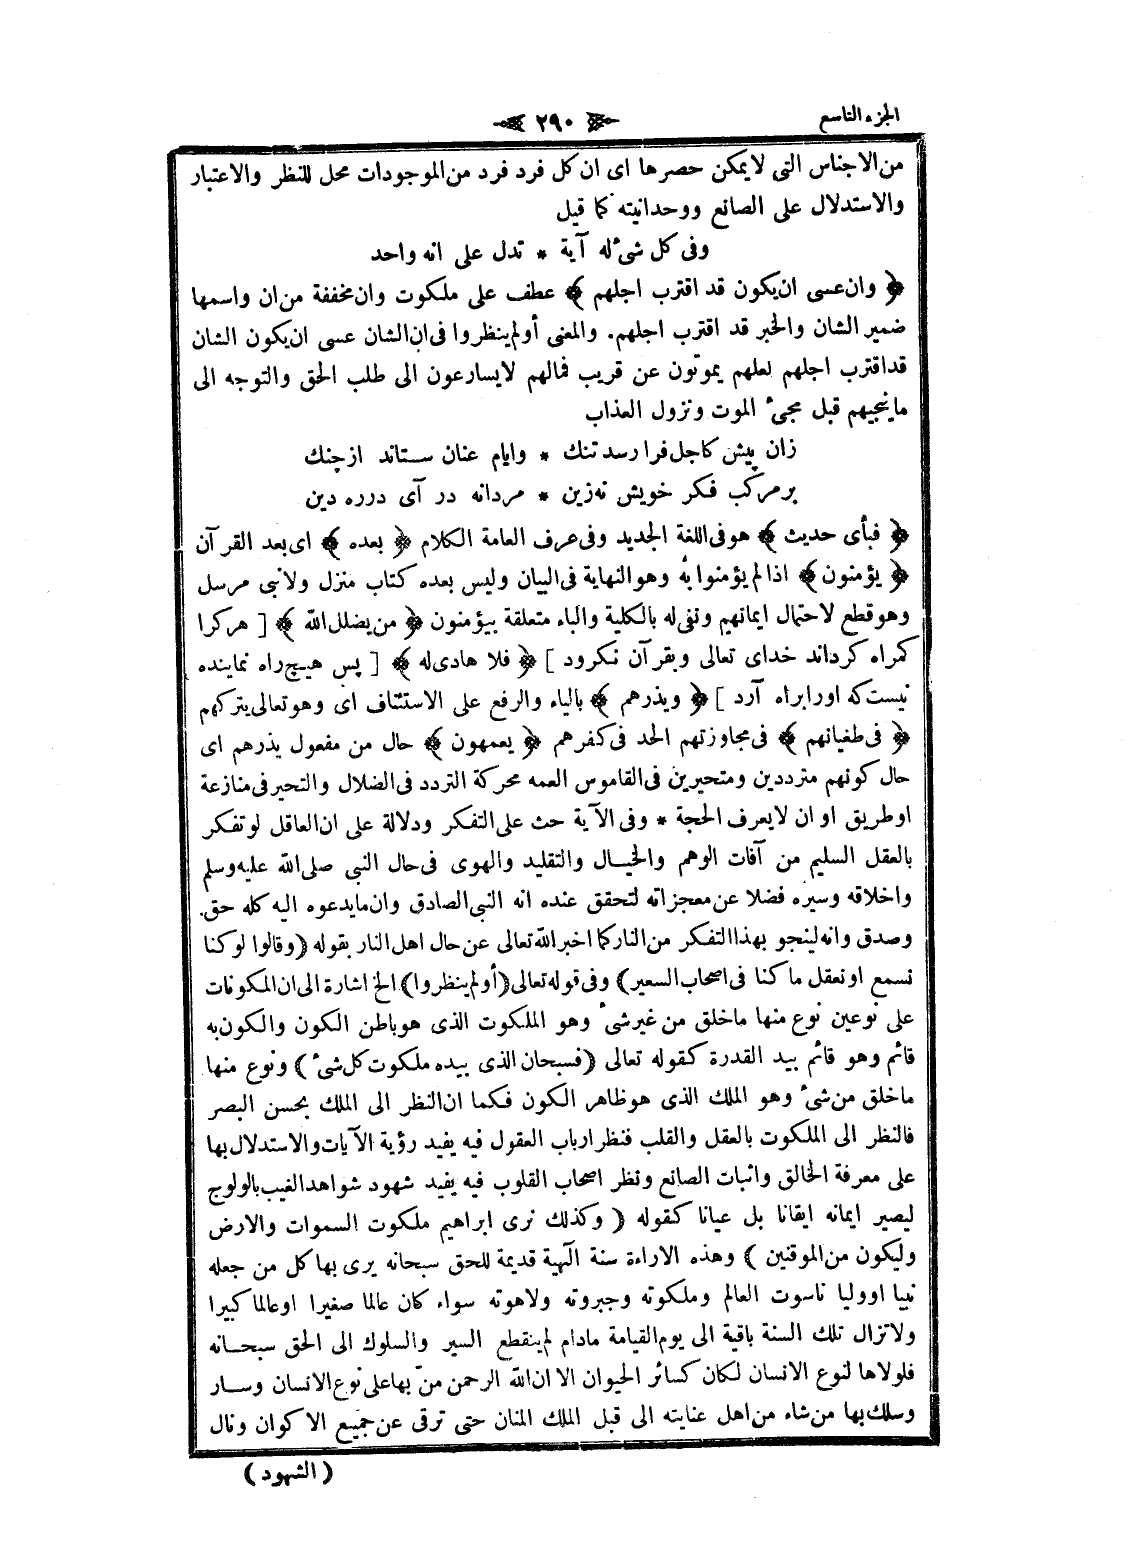 الجزء التاسع
٢٩٠
من الاجناس التى لا يمكن حصرها اى ان كل فرد فرد من الموجودات محل للنظر والاعتبار
والاستدلال على الصانع ووحدانيته كما قيل
وفى كل شئ له آية * تدل على انه واحد
﴿ وان عسى ان يكون قد اقترب اجلهم ﴾ عطف على ملكوت وان مخففة من ان واسمها
ضمير الشان والخبر قد اقترب اجلهم. والمعنى أولم ينظروا فى ان الشان عسى ان يكون الشان
قد اقترب اجلهم لعلهم يموتون عن قريب فمالهم لا يسارعون الى طلب الحق والتوجه الى
ما ينجيهم قبل مجئ الموت ونزول العذاب
زان پيش كاجل فرا رسد تنك * وايام عنان ستاند از چنك
بر مركب فكر خويش نه زين * مردانه در آى در ره دين
﴿ فبأى حديث ﴾ هو فى اللغة الجديد وفى عرف العامة الكلام ﴿ بعده ﴾ اى بعد القرآن
﴿ يؤمنون ﴾ اذا لم يؤمنوا به وهو النهاية فى البيان وليس بعده كتاب منزل ولا نبى مرسل
وهو قطع لاحتمال ايمانهم ونفى له بالكلية والباء متعلقة بيؤمنون ﴿ من يضلل الله ﴾ [ هر كرا
كمراه كرداند خداى تعالى وبقرآن نكرود ] ﴿ فلا هادى له ﴾ [ پس هيچ راه نماينده
نيست كه اورا براه آرد ] ﴿ ويذرهم ﴾ بالياء والرفع على الاستئناف اى وهو تعالى يتركهم
﴿ فى طغيانهم ﴾ فى مجاوزتهم الحد فى كفرهم ﴿ يعمهون ﴾ حال من مفعول يذرهم اى
حال كونهم مترددين ومتحيرين فى القاموس العمه محركة التردد فى الضلال والتحير فى منازعة
او طريق او ان لا يعرف الحجة * وفى الآية حث على التفكر ودلالة على ان العاقل لو تفكر
بالعقل السليم من آفات الوهم والخيال والتقليد والهوى فى حال النبى صلى الله عليه وسلم
واخلاقه وسيره فضلا عن معجزاته لتحقق عنده انه النبى الصادق وان ما يدعوه اليه كله حق.
وصدق وانه لينجو بهذا التفكر من النار كما اخبر الله تعالى عن حال اهل النار بقوله (وقالوا لو كنا
نسمع او نعقل ما كنا فى اصحاب السعير) وفى قوله تعالى (أولم ينظروا) الخ اشارة الى ان المكونات
على نوعين نوع منها ما خلق من غير شئ وهو الملكوت الذى هو باطن الكون والكون به
قائم وهو قائم بيد القدرة كقوله تعالى (فسبحان الذى بيده ملكوت كل شئ) ونوع منها
ما خلق من شئ وهو الملك الذى هو ظاهر الكون فكما ان النظر الى الملك بحسن البصر
فالنظر الى الملكوت بالعقل والقلب فنظر ارباب العقول فيه يفيد رؤية الآيات والاستدلال بها
على معرفة الخالق واثبات الصانع ونظر اصحاب القلوب فيه يفيد شهود شواهد الغيب بالولوج
ليصير ايمانه ايقانا بل عيانا كقوله ( وكذلك نرى ابراهيم ملكوت السموات والارض
وليكون من الموقنين ) وهذه الاراءة سنة آلهية قديمة للحق سبحانه يرى بها كل من جعله
نبيا او وليا ناسوت العالم وملكوته وجبروته ولاهوته سواء كان عالما صغيرا او عالما كبيرا
ولا تزال تلك السنة باقية الى يوم القيامة مادام لم ينقطع السير والسلوك الى الحق سبحانه
فلولاها لنوع الانسان لكان كسائر الحيوان الا ان الله الرحمن منّ بها على نوع الانسان وسار
وسلك بها من شاء من اهل عنايته الى قبل الملك المنان حتى ترقى عن جميع الاكوان ونال
( الشهود )